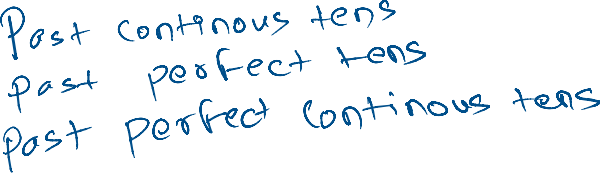 Past continous tens
past perfect tens
past perfect continous tens